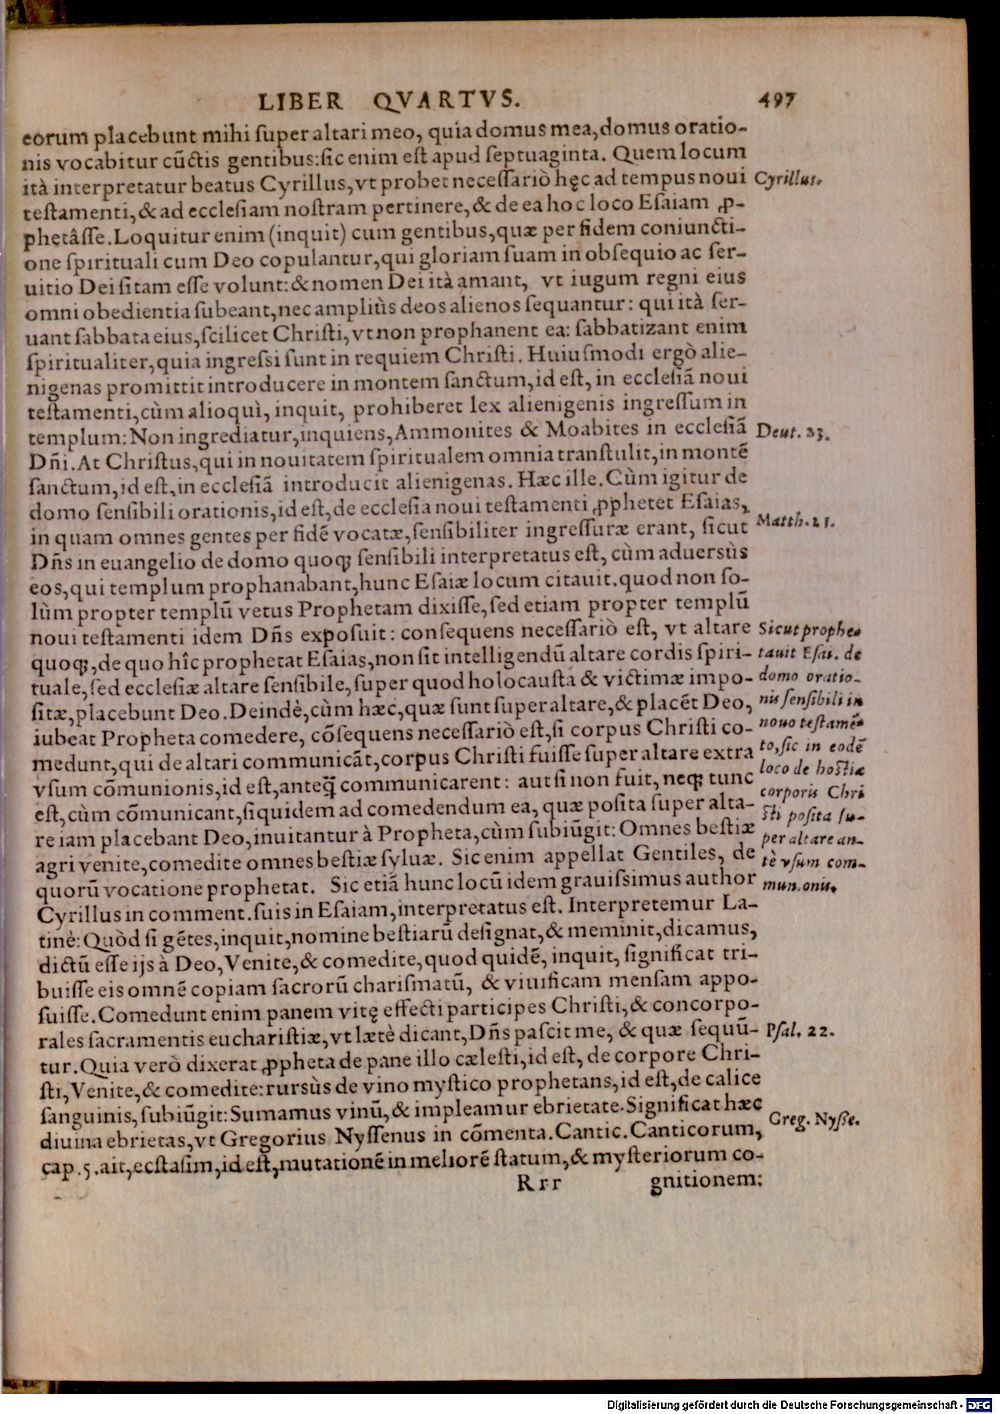 LIBER QVARTVS. 497
eorum placebunt mihi ſuper altari meo, quia domus mea, domus oratio-
nis vocabitur cūctis gentibus: ſic enim eſt apud ſeptuaginta. Quem locum
ità interpretatur beatus Cyrillus, vt probet neceſſariò hęc ad tempus noui
Cyrillus.
teſtamenti, & ad eccleſiam noſtram pertinere, & de ea hoc loco Eſaiam ꝓ-
phetâſſe. Loquitur enim (inquit) cum gentibus, quæ per fidem coniuncti-
one ſpirituali cum Deo copulantur, qui gloriam ſuam in obſequio ac ſer-
uitio Dei ſitam eſſe volunt: & nomen Dei ità amant, vt iugum regni eius
omni obedientia ſubeant, nec ampliùs deos alienos ſequantur: qui ità ſer-
uant ſabbata eius, ſcilicet Chriſti, vt non prophanent ea: ſabbatizant enim
ſpiritualiter, quia ingreſſi ſunt in requiem Chriſti. Huiuſmodi ergò alie-
nigenas promittit introducere in montem ſanctum, id eſt, in eccleſiā noui
teſtamenti, cùm alioquì, inquit, prohiberet lex alienigenis ingreſſum in
templum: Non ingrediatur, inquiens, Ammonites & Moabites in eccleſiā
Deut. 23.
Dñi. At Chriſtus, qui in nouitatem ſpiritualem omnia tranſtulit, in montē
ſanctum, id eſt, in eccleſiā introducit alienigenas. Hæc ille. Cùm igitur de
domo ſenſibili orationis, id eſt, de eccleſia noui teſtamenti ꝓphetet Eſaias,
in quam omnes gentes per fidē vocatæ, ſenſibiliter ingreſſuræ erant, ſicut
Matth. 21.
Dñs in euangelio de domo quoqꝫ ſenſibili interpretatus eſt, cùm aduersùs
eos, qui templum prophanabant, hunc Eſaiæ locum citauit. quod non ſo-
lùm propter templū vetus Prophetam dixiſſe, ſed etiam propter templū
noui teſtamenti idem Dñs expoſuit: conſequens neceſſariò eſt, vt altare
quoqꝫ, de quo hîc prophetat Eſaias, non ſit intelligendū altare cordis ſpiri-
tuale, ſed eccleſiæ altare ſenſibile, ſuper quod holocauſta & victimæ impo-
ſitæ, placebunt Deo. Deindè, cùm hæc, quæ ſunt ſuper altare, & placēt Deo,
iubeat Propheta comedere, cōſequens neceſſariò eſt, ſi corpus Chriſti co-
medunt, qui de altari communicāt, corpus Chriſti fuiſſe ſuper altare extra
vſum cōmunionis, id eſt, anteq̃ communicarent: aut ſi non fuit, neqꝫ tunc
eſt, cùm cōmunicant, ſiquidem ad comedendum ea, quæ poſita ſuper alta-
re iam placebant Deo, inuitantur à Propheta, cùm ſubiūgit: Omnes beſtiæ
agri venite, comedite omnes beſtiæ ſyluæ. Sic enim appellat Gentiles, de
quorū vocatione prophetat. Sic etiā hunc locū idem grauiſsimus author
Sicut prophe-
tauit Eſai. de
domo oratio-
nis ſenſibili in
nouo teſtamē-
to, ſic in eodē
loco de hoſtia
corporis Chri
ſti poſita ſu-
per altare an-
tè vſum com-
munionis.
Cyrillus in comment. ſuis in Eſaiam, interpretatus eſt. Interpretemur La-
tinè: Quòd ſi gētes, inquit, nomine beſtiarū deſignat, & meminit, dicamus,
dictū eſſe ijs à Deo, Venite, & comedite, quod quidē, inquit, ſignificat tri-
buiſſe eis omnē copiam ſacrorū chariſmatū, & viuificam menſam appo-
ſuiſſe. Comedunt enim panem vitę effecti participes Chriſti, & concorpo-
rales ſacramentis euchariſtiæ, vt lætè dicant, Dñs paſcit me, & quæ ſequū-
Pſal. 22.
tur. Quia verò dixerat ꝓpheta de pane illo cæleſti, id eſt, de corpore Chri-
ſti, Venite, & comedite: rursùs de vino myſtico prophetans, id eſt, de calice
ſanguinis, ſubiūgit: Sumamus vinū, & impleamur ebrietate. Significat hæc
diuina ebrietas, vt Gregorius Nyſſenus in cōmenta. Cantic. Canticorum,
Greg. Nyſſe.
cap. 5. ait, ecſtaſim, id eſt, mutationē in meliorē ſtatum, & myſteriorum co-
Rrr gnitionem:
Digitalisierung gefördert durch die Deutsche Forschungsgemeinschaft - DFG